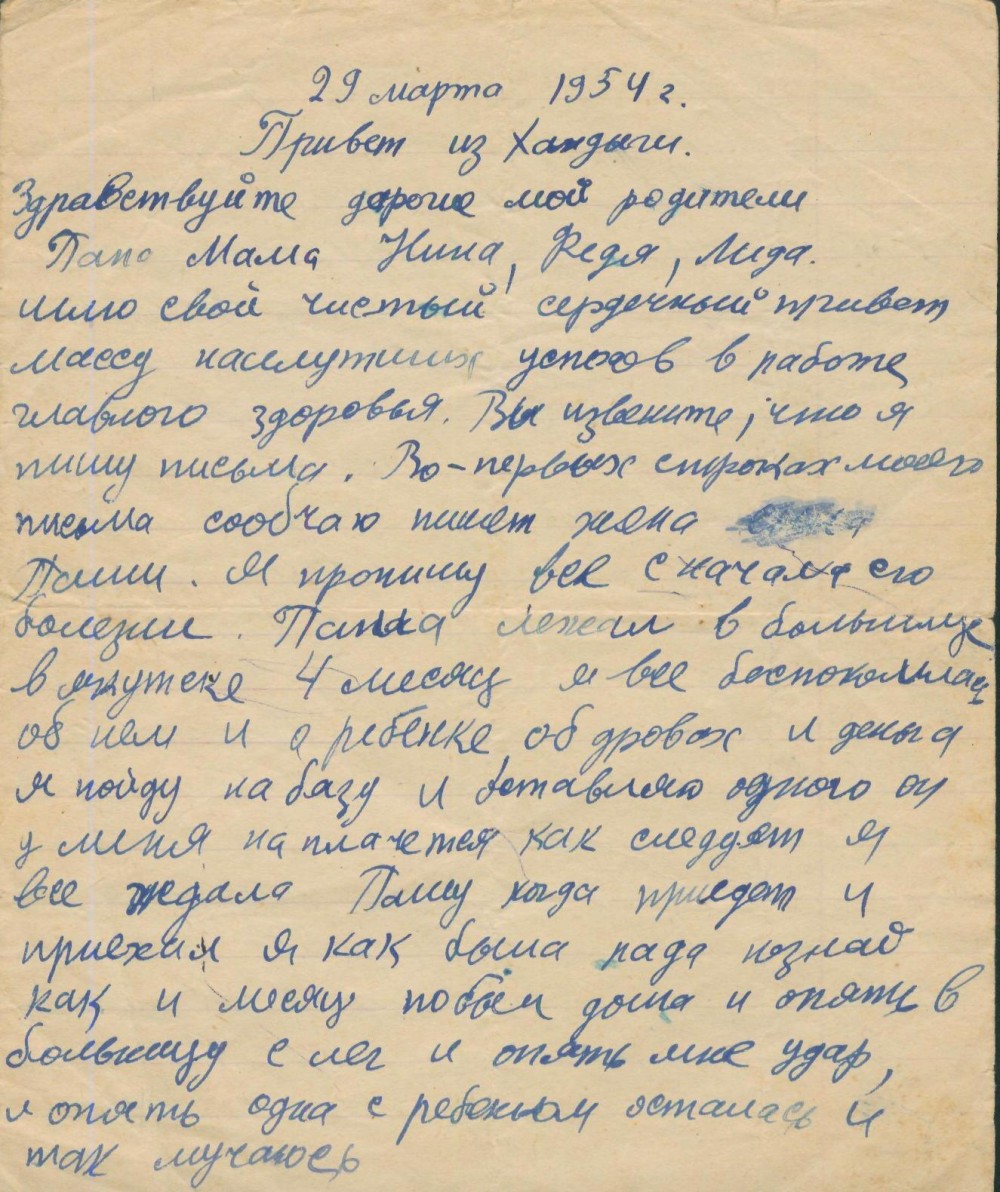 29 марта 1954 г.
Привет из Хандыги.
Здравствуйте дорогие мой родители
Папа Мама Нина, Федя, Лида.
шлю свой чистый сердечный привет
массу наилутших успехов в работе,
главного здоровья. Вы извените, что я
пишу письма. Во-первых строках моего
письма сообчаю пишет жена
Паши. Я пропишу все сначала его
болезни. Пашка лежал в больнице
в якутске 4 месяц я все беспокоилась
об нем и о ребенке об дровах и деньга
я пойду на базу и оставляю одного он
у меня на плачется как следует я
все ждала Пашу когда приедет и
приехал я как была рада
как и месяц побыл дома и опять в
больницу слег и опять мне удар,
и опять одна с ребенком осталась и
так мучаюсь